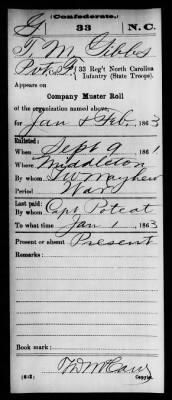 (Confederate.)
G 33 N.C.
T. M. Gibbs
Pvt. G, 33 Reg't North Carolina
Infantry (State Troops).
Appears on
Company Muster Roll
of the organization named above,
for Jan & Feb, 1863
Enlisted:
When Sept 9, 1861
Where Middleton
By whom J W Mayhew
Period War
Last paid:
By whom Capt Poteat
To what time Jan 1, 1863
Present or absent Present
Remarks:
Book mark:
(642) Copyist.